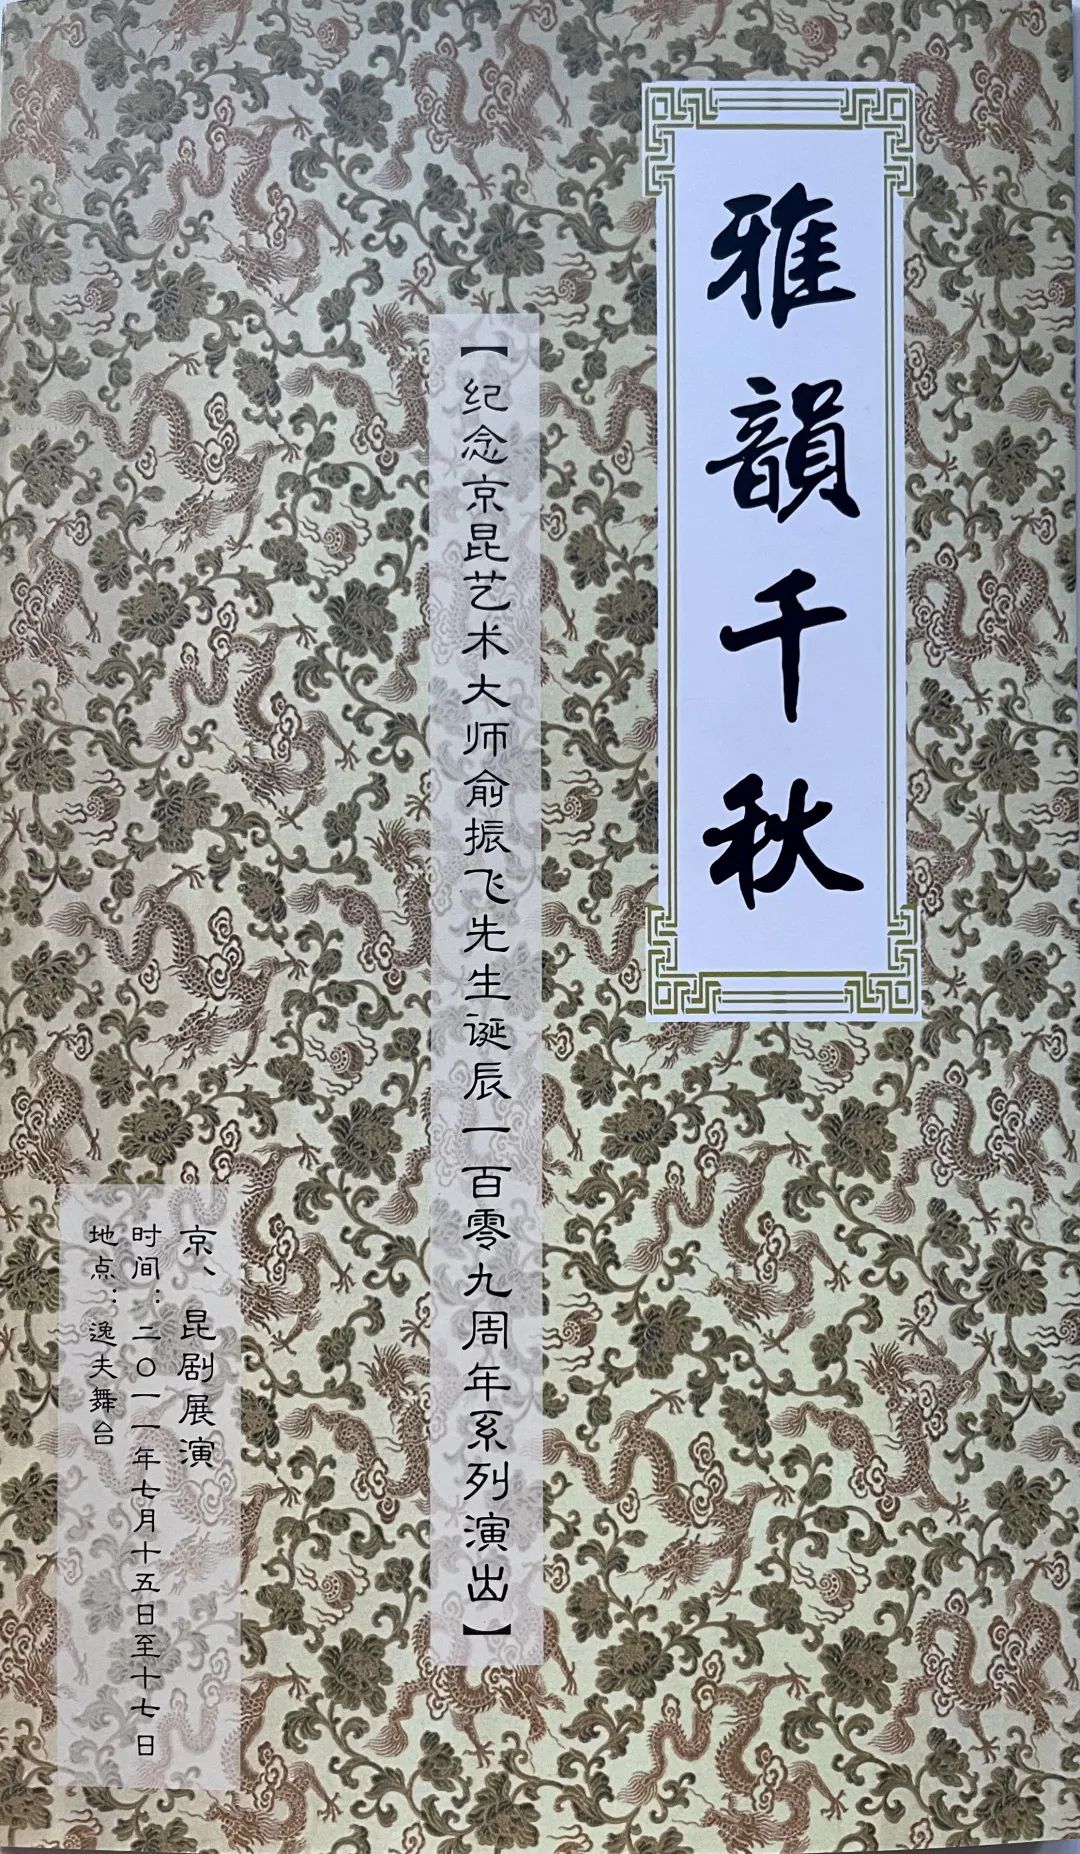 雅韻千秋
【纪念京昆艺术大师俞振飞先生诞辰一百零九周年系列演出】
京、昆剧展演
时间：二〇一一年七月十五日至十七日
地点：逸夫舞台